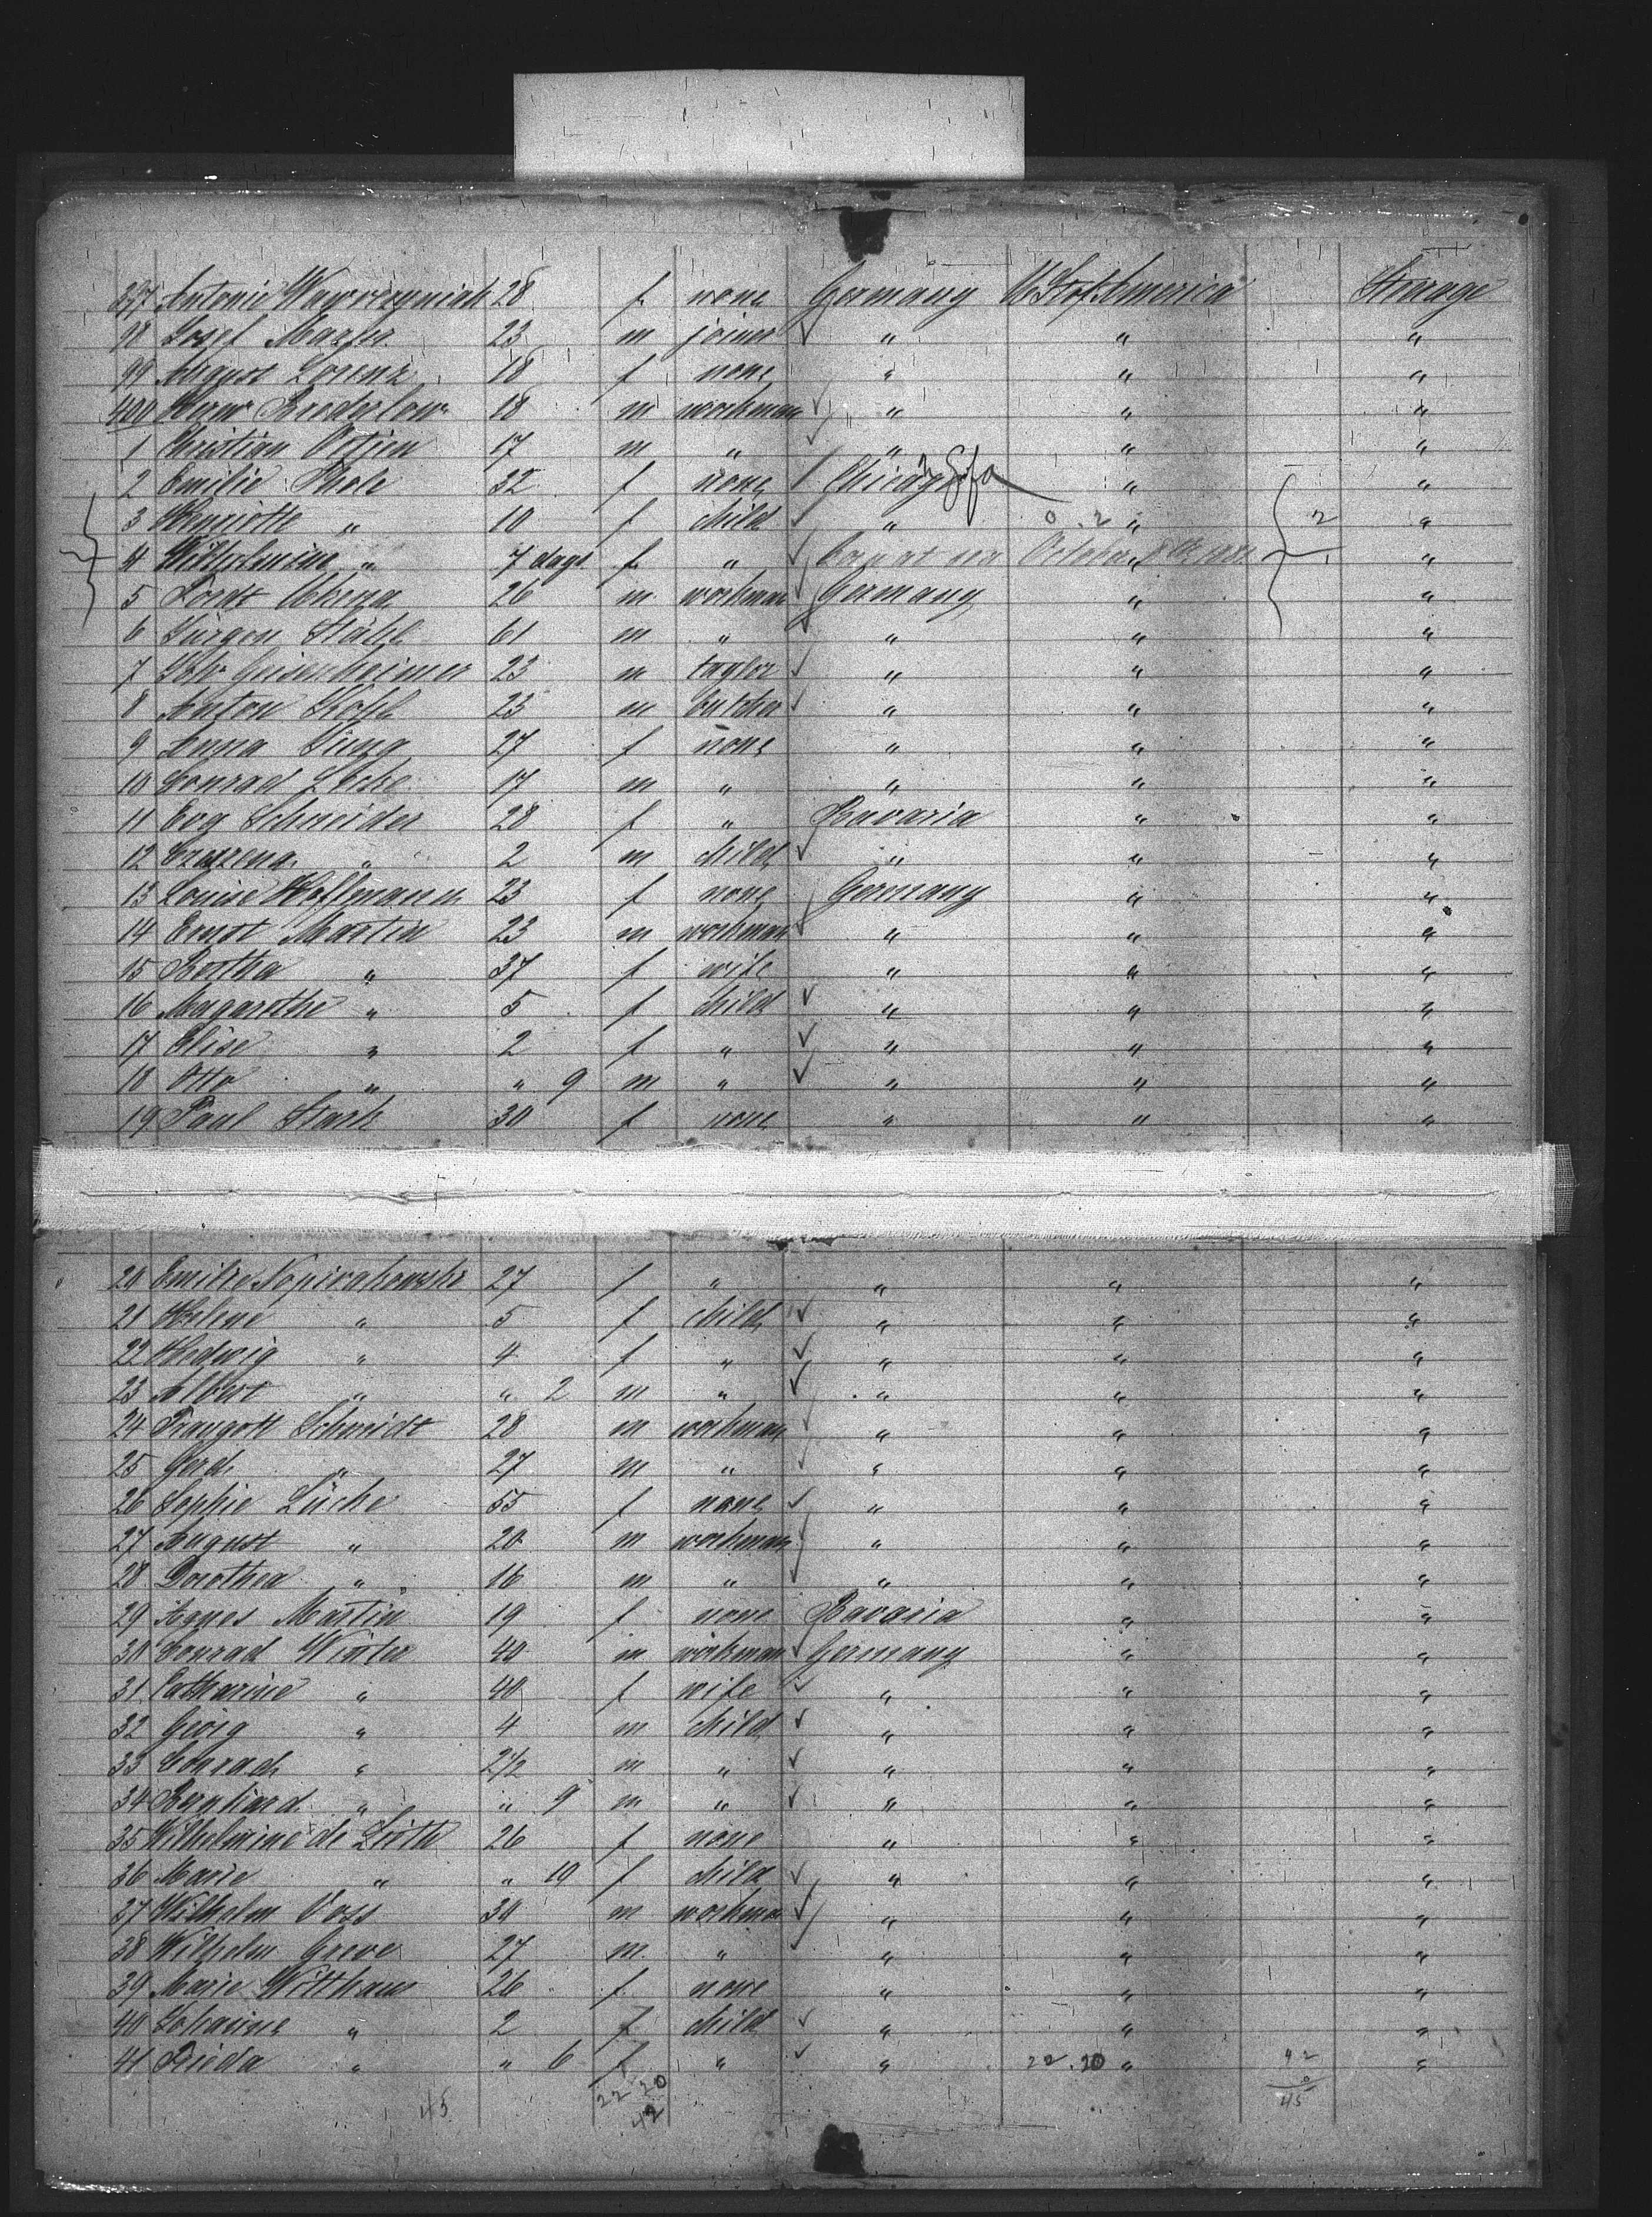 397 Antonie Wawrzyniak 28 f none Germany U.St.of America Steerage
98 Josef 23 m joiner " " "
99 August Lorenz 18 f none " " "
400 18 m workman " " "
1 Christian 17 m " " " "
2 Emilie 32 f none Chicago "  "
3 Henriette " 10 f child " 0.2 " 2 "
4 Wilhelmine " 7 days f " born at sea October " 1 "
5 26 m workman Germany " "
6 Jürgen Stähl 61 m " " " "
7 Joh. Geisenheimer 23 m taylor " " "
8 Anton 23 m butcher " " "
9 Anna Jung 27 f none " " "
10 Conrad 17 m " " " "
11 Eva Schneider 28 f " Bavaria " "
12 " 2 m child " " "
13 Louise Hoffmann 23 f none Germany " "
14 Ernst Martin 23 m workman " " "
15 Bertha " 37 f wife " " "
16 Magarethe " 5 f child " " "
17 Elise " 2 f " " " "
18 Otto " " 9 m " " " "
19 Paul Stark 30 f none " " "
20 Emilie 27 f " " " "
21 Helene " 5 f child " " "
22 Hedwig " 4 f " " " "
23 Albert " " 2 m " " " "
24 Traugott Schmidt 28 m workman " " "
25 Gerd. " 27 m " " " "
26 Sophie Lüche 55 f none " " "
27 August " 20 m workman " " "
28 Dorothea " 16 m " " " "
29 Agnes Martin 19 f none Bavaria " "
30 Conrad Winter 40 m workman Germany " "
31 Catharine " 40 f wife " " "
32 Georg " 4 m child " " "
33 Conrad " 2½ m " " " "
34 Bernhard " " 9 m " " " "
35 Wilhelmine de 26 f none " " "
36 Marie " " 10 f child " " "
37 Wilhelm Voss 30 m workman " " "
38 Wilhelm Greve 27 m " " " "
39 Marie Witthaus 26 f none " " "
40 Johanne " 2 f child " " "
41 Frieda " " 6 f " " 22.20 " 42 "
45 22 20 45
42